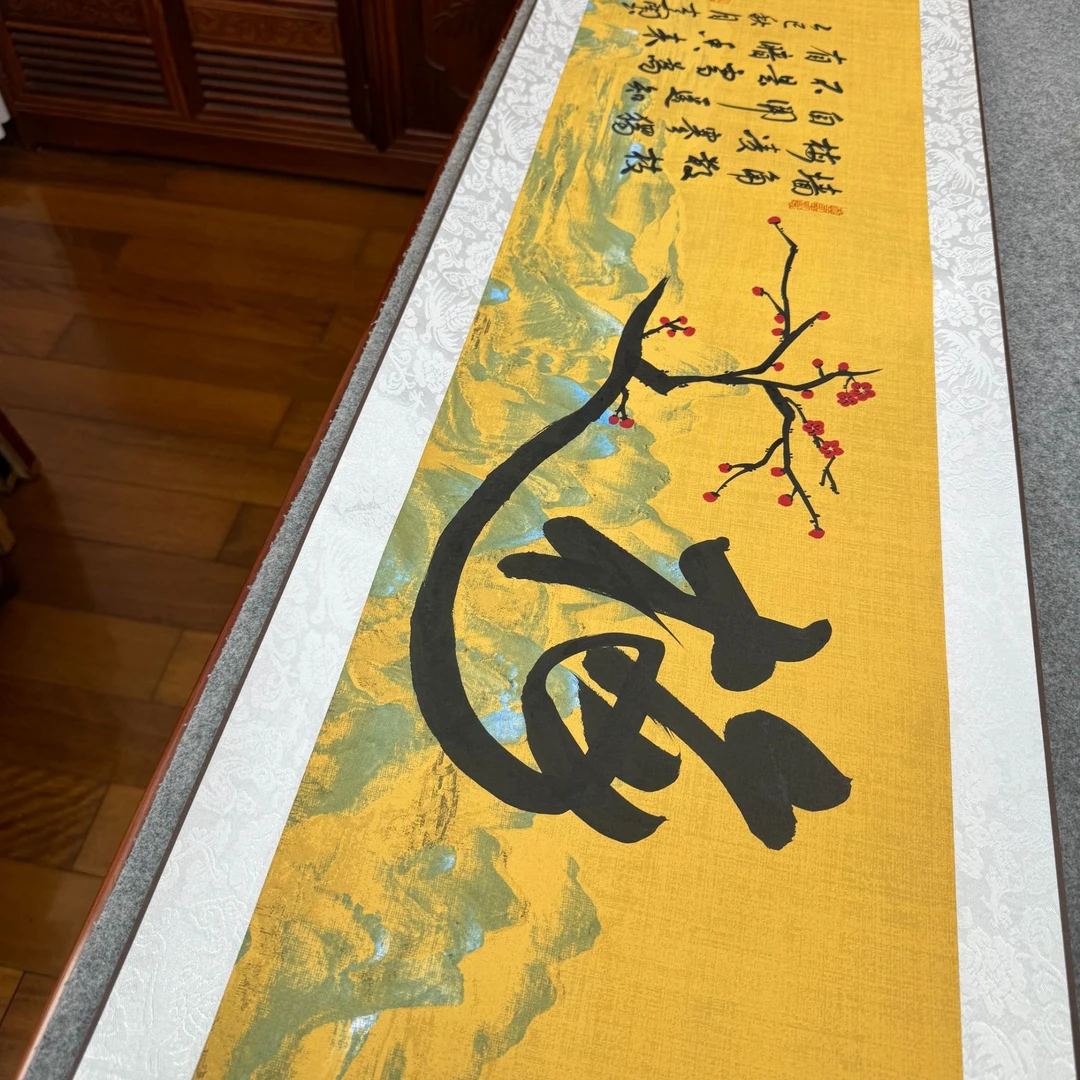 梅
墙角数枝
梅凌寒独
自開遥知
不是雪為
有暗香来
乙巳秋月